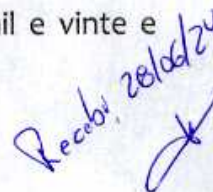 mil e vinte e
Recebi, 28/06/24